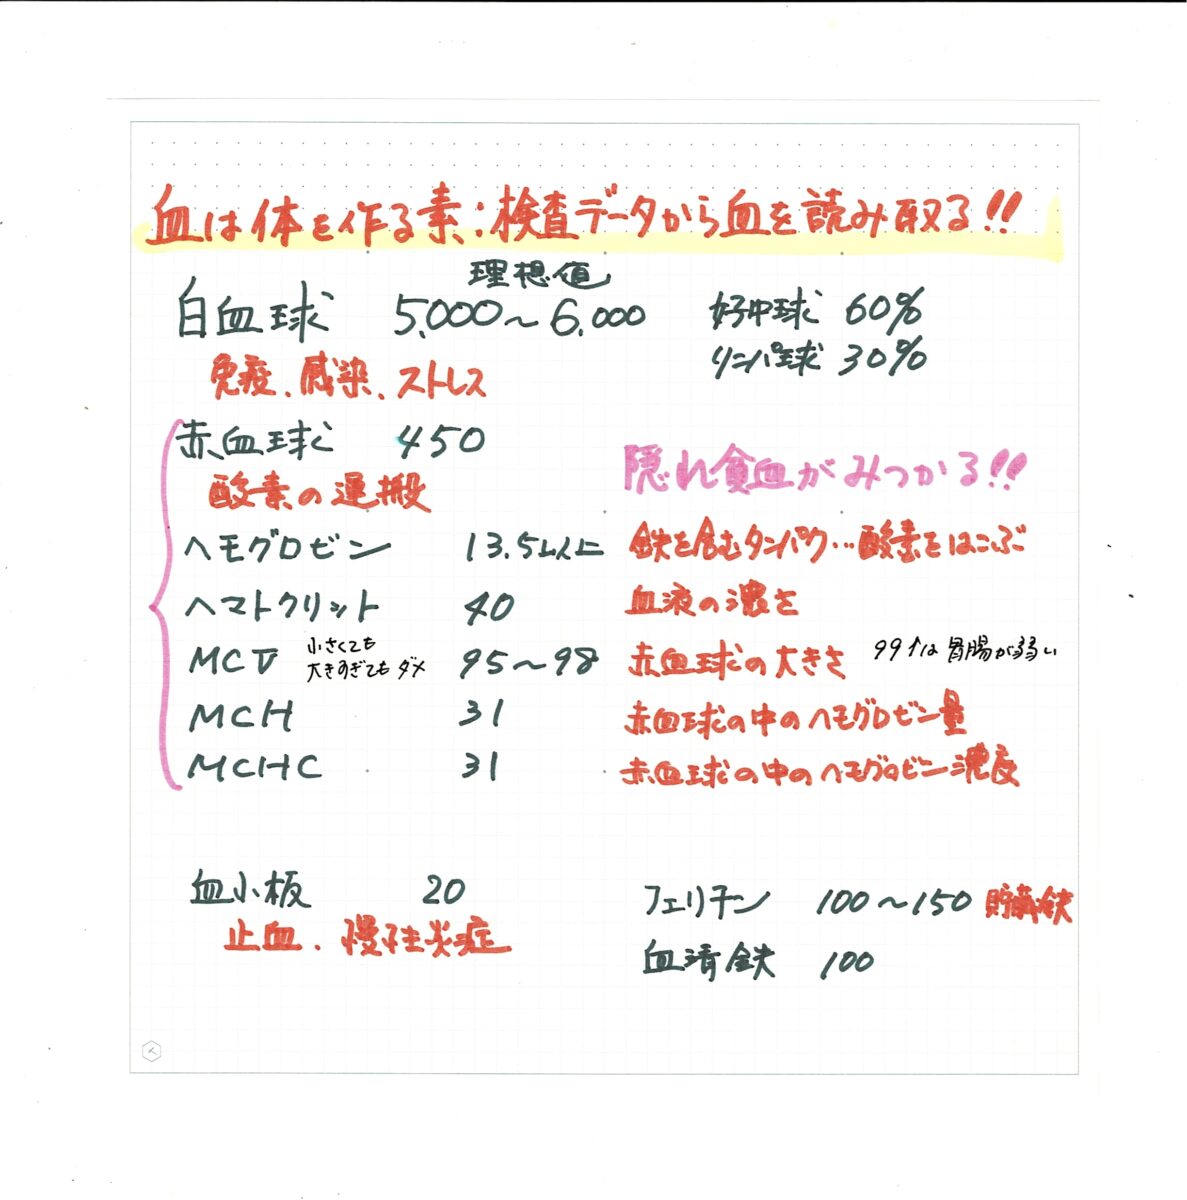 血は体を作る素:検査データから血を読み取る!!
理想値
白血球 5,000～6,000 好中球 60%
リンパ球 30%
免疫、感染、ストレス
赤血球 450
隠れ貧血がみつかる!!
酸素の運搬
ヘモグロビン 13.5以上 鉄を含むタンパク…酸素をはこぶ
ヘマトクリット 40 血液の濃さ
MCV 小さくても 95～98 赤血球の大きさ 99↑は胃腸が弱い
大きすぎてもダメ
MCH 31 赤血球の中のヘモグロビン量
MCHC 31 赤血球の中のヘモグロビン濃度
血小板 20 フェリチン 100～150 貯蔵鉄
止血、慢性炎症
血清鉄 100